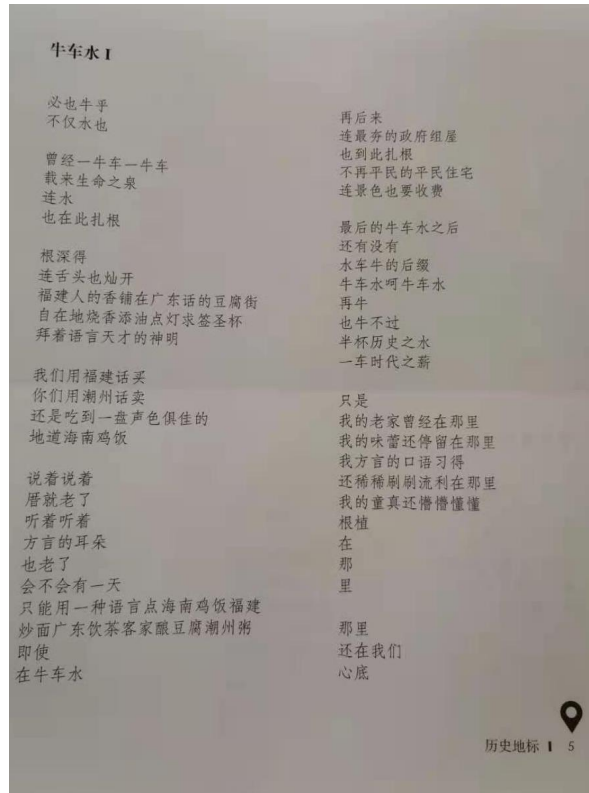 牛车水 I
必也牛乎
不仅水也
曾经一牛车一牛车
载来生命之泉
连水
也在此扎根
根深得
连舌头也灿开
福建人的香铺在广东话的豆腐街
自在地烧香添油点灯求签圣杯
拜着语言天才的神明
我们用福建话买
你们用潮州话卖
还是吃到一盘声色俱佳的
地道海南鸡饭
说着说着
厝就老了
听着听着
方言的耳朵
也老了
会不会有一天
只能用一种语言点海南鸡饭福建
炒面广东饮茶客家酿豆腐潮州粥
即使
在牛车水
再后来
连最夯的政府组屋
也到此扎根
不再平民的平民住宅
连景色也要收费
最后的牛车水之后
还有没有
水车牛的后缀
牛车水呵牛车水
再牛
也牛不过
半杯历史之水
一车时代之薪
只是
我的老家曾经在那里
我的味蕾还停留在那里
我方言的口语习得
还稀稀刷刷流利在那里
我的童真还懵懵懂懂
根植
在
那
里
那里
还在我们
心底
历史地标 I 5